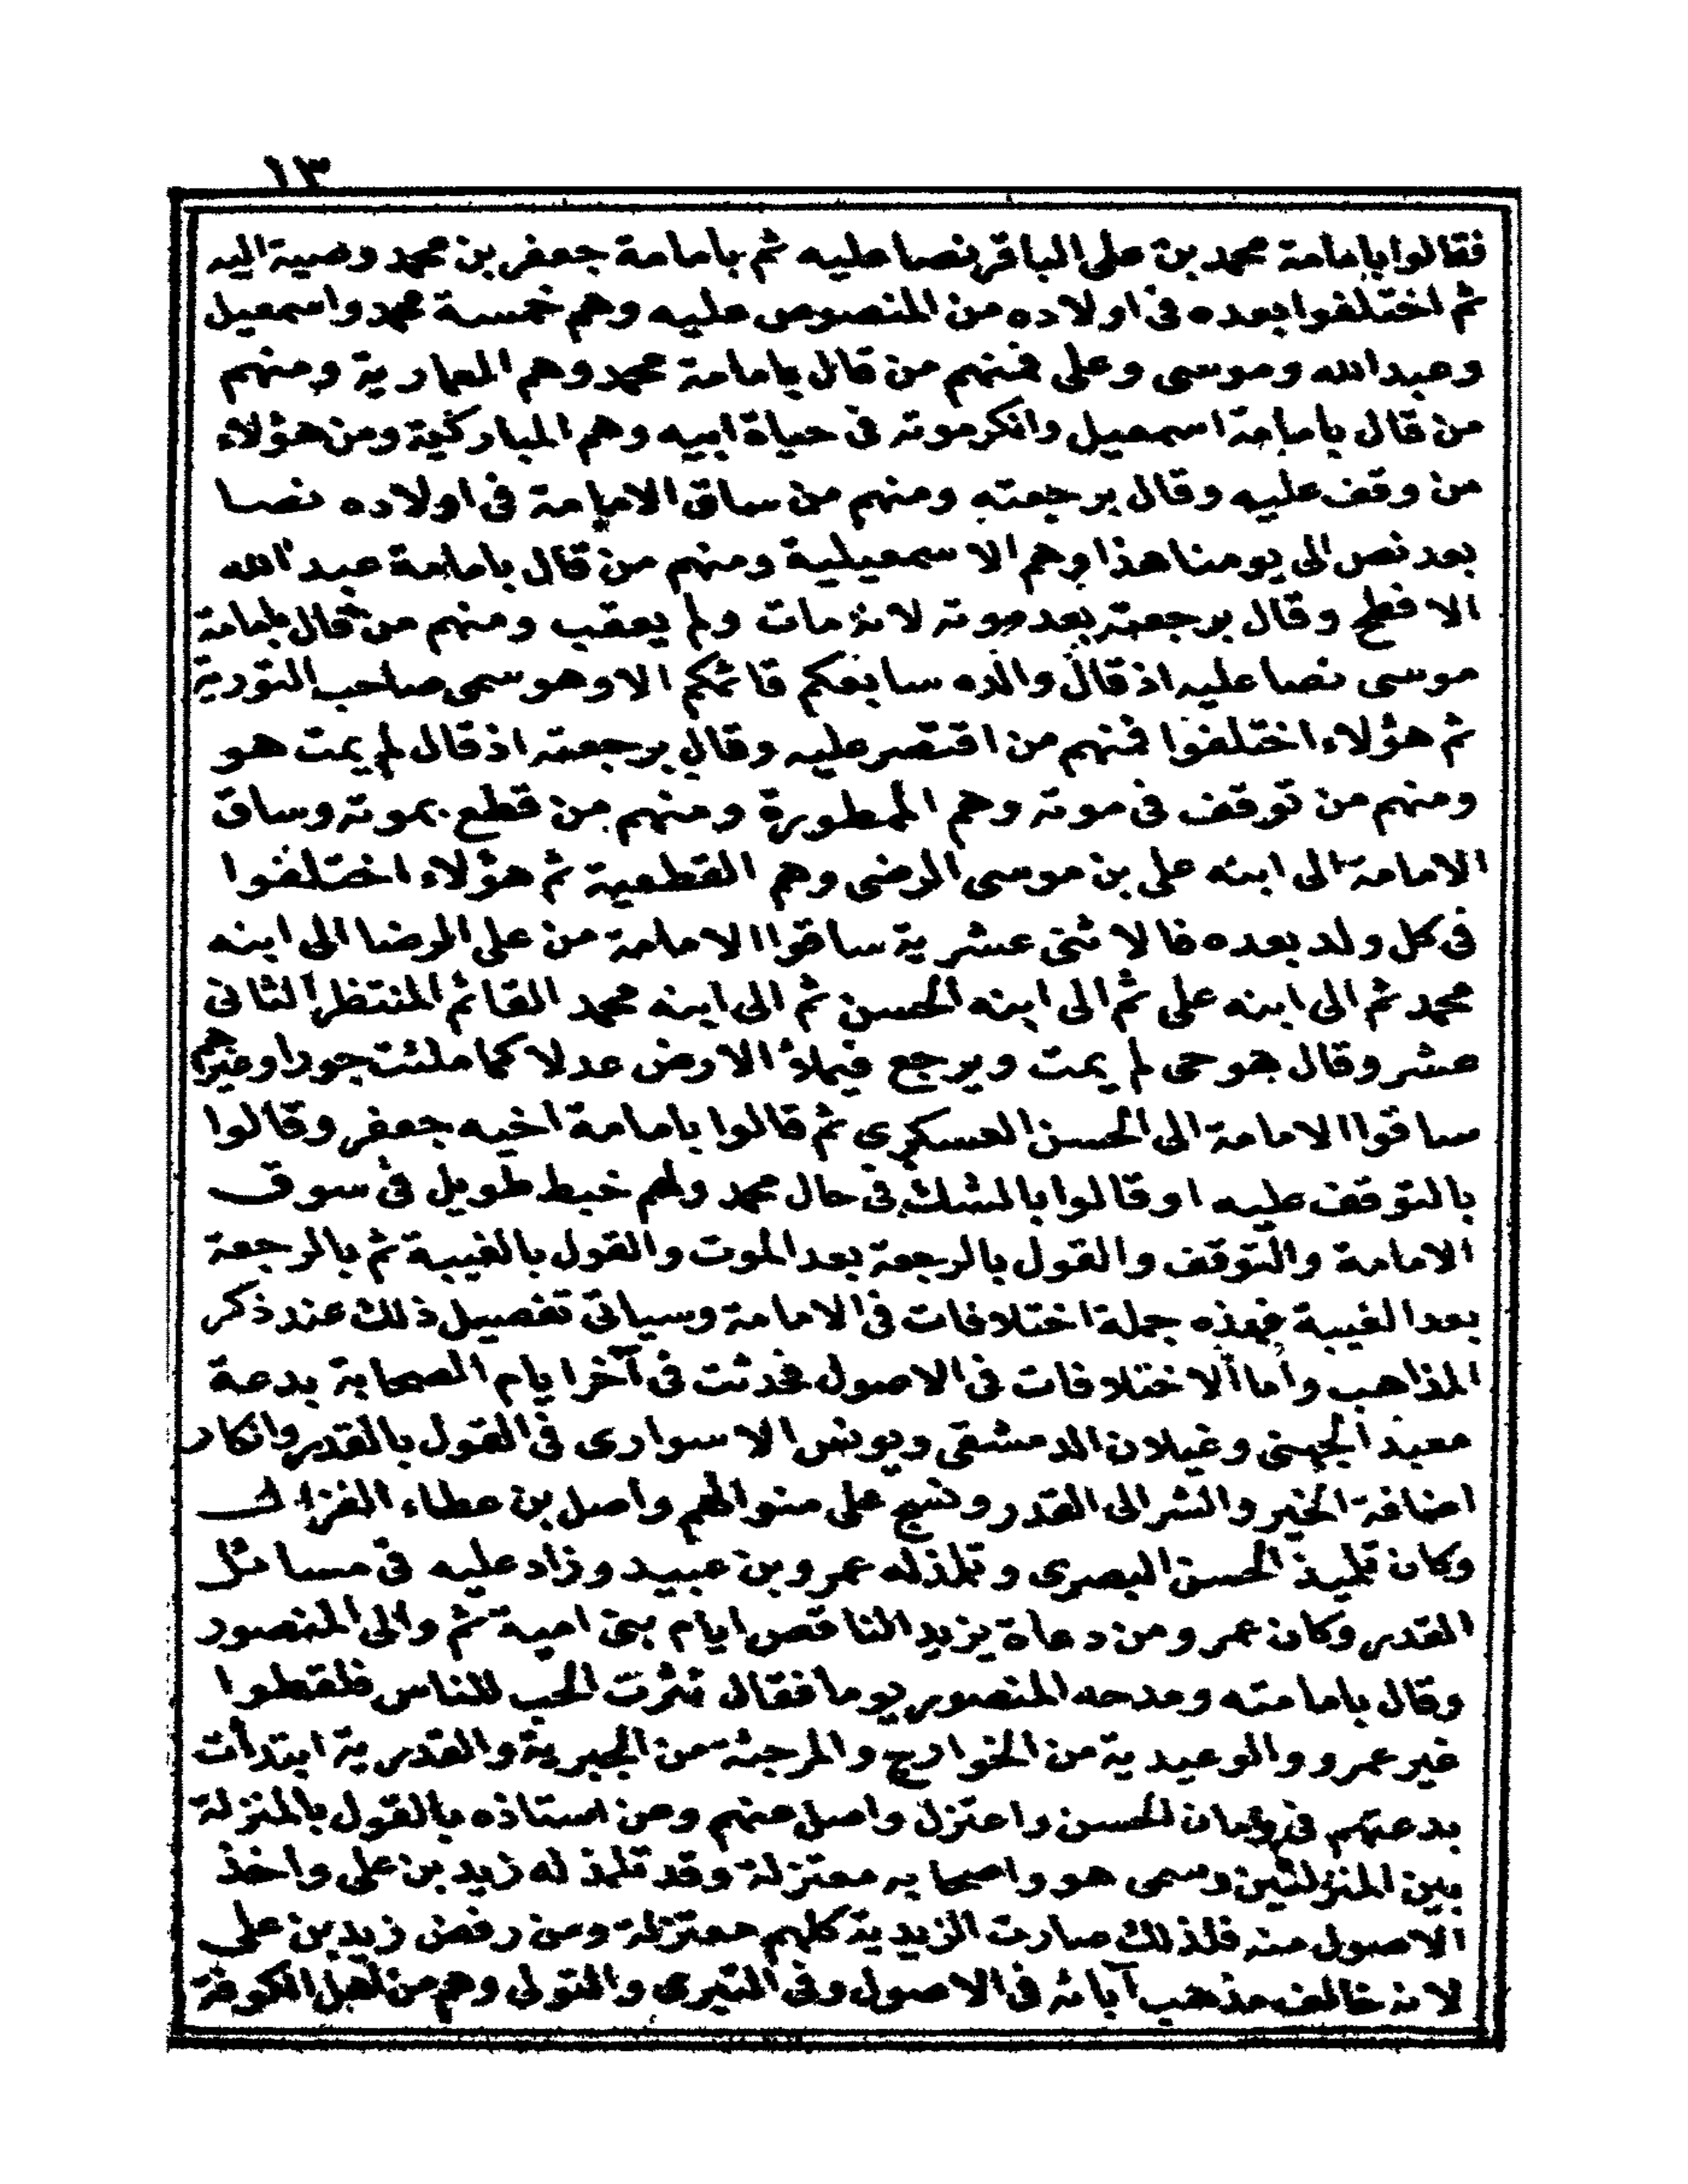 ١٣
فقالوا بامامة محمد بن على الباقر نصا عليه ثم بامامة جعفر بن محمد وصية اليه
ثم اختلفوا بعده فى اولاده من المنصوص عليه وهم خمسة محمد واسمعيل
وعبد الله وموسى وعلى فمنهم من قال بامامة محمد وهم العمارية ومنهم
من قال بامامة اسمعيل وانكر موته فى حياة ابيه وهم المباركية ومن هؤلاء
من وقف عليه وقال برجعته ومنهم من ساق الامامة فى اولاده نصا
بعد نص الى يومنا هذا وهم الاسمعيلية ومنهم من قال بامامة عبد الله
الافطح وقال برجعته بعد موته لانه مات ولم يعقب ومنهم من قال بامامة
موسى نصا عليه اذ قال والده سابعكم قائمكم الا وهو سمى صاحب التورية
ثم هؤلاء اختلفوا فمنهم من اقتصر عليه وقال برجعته اذ قال لم يمت هو
ومنهم من توقف فى موته وهم الممطورة ومنهم من قطع بموته وساق
الامامة الى ابنه على بن موسى الرضى وهم القطعية ثم هؤلاء اختلفوا
فى كل ولد بعده فالاثنى عشرية ساقوا الامامة من على الرضا الى ابنه
محمد ثم الى ابنه على ثم الى ابنه الحسن ثم الى ابنه محمد القائم المنتظر الثانى
عشر وقال هو حى لم يمت ويرجع فيملأ الارض عدلا كما ملئت جورا وغيرهم
ساقوا الامامة الى الحسن العسكرى ثم قالوا بامامة اخيه جعفر وقالوا
بالتوقف عليه او قالوا بالشك فى حال محمد ولهم خبط طويل فى سوق
الامامة والتوقف والقول بالرجعة بعد الموت والقول بالغيبة ثم بالرجعة
بعد الغيبة فهذه جملة اختلافات فى الامامة وسياتى تفصيل ذلك عند ذكر
المذاهب واما الاختلافات فى الاصول فحدثت فى آخر ايام الصحابة بدعة
معبد الجهنى وغيلان الدمشقى ويونس الاسوارى فى القول بالقدر وانكار
اضافة الخير والشر الى القدر ونسج على منوالهم واصل بن عطاء الغزال
وكان تلميذ الحسن البصرى وتلمذ له عمرو بن عبيد وزاد عليه فى مسائل
القدر وكان عمرو من دعاة يزيد الناقص ايام بنى امية ثم والى المنصور
وقال بامامته ومدحه المنصور يوما فقال نثرت الحب للناس فلقطوا
غير عمرو والوعيدية من الخوارج والمرجئة من الجبرية والقدرية ابتدأت
بدعتهم فى زمان الحسن واعتزل واصل عنهم وعن استاذه بالقول بالمنزلة
بين المنزلتين وسمى هو واصحابه معتزلة وقد تلمذ له زيد بن على واخذ
الاصول منه فلذلك صارت الزيدية كلهم معتزلة ومن رفض زيد بن على
لانه خالف مذهب آبائه فى الاصول وفى التبرى والتولى وهم من اهل الكوفة